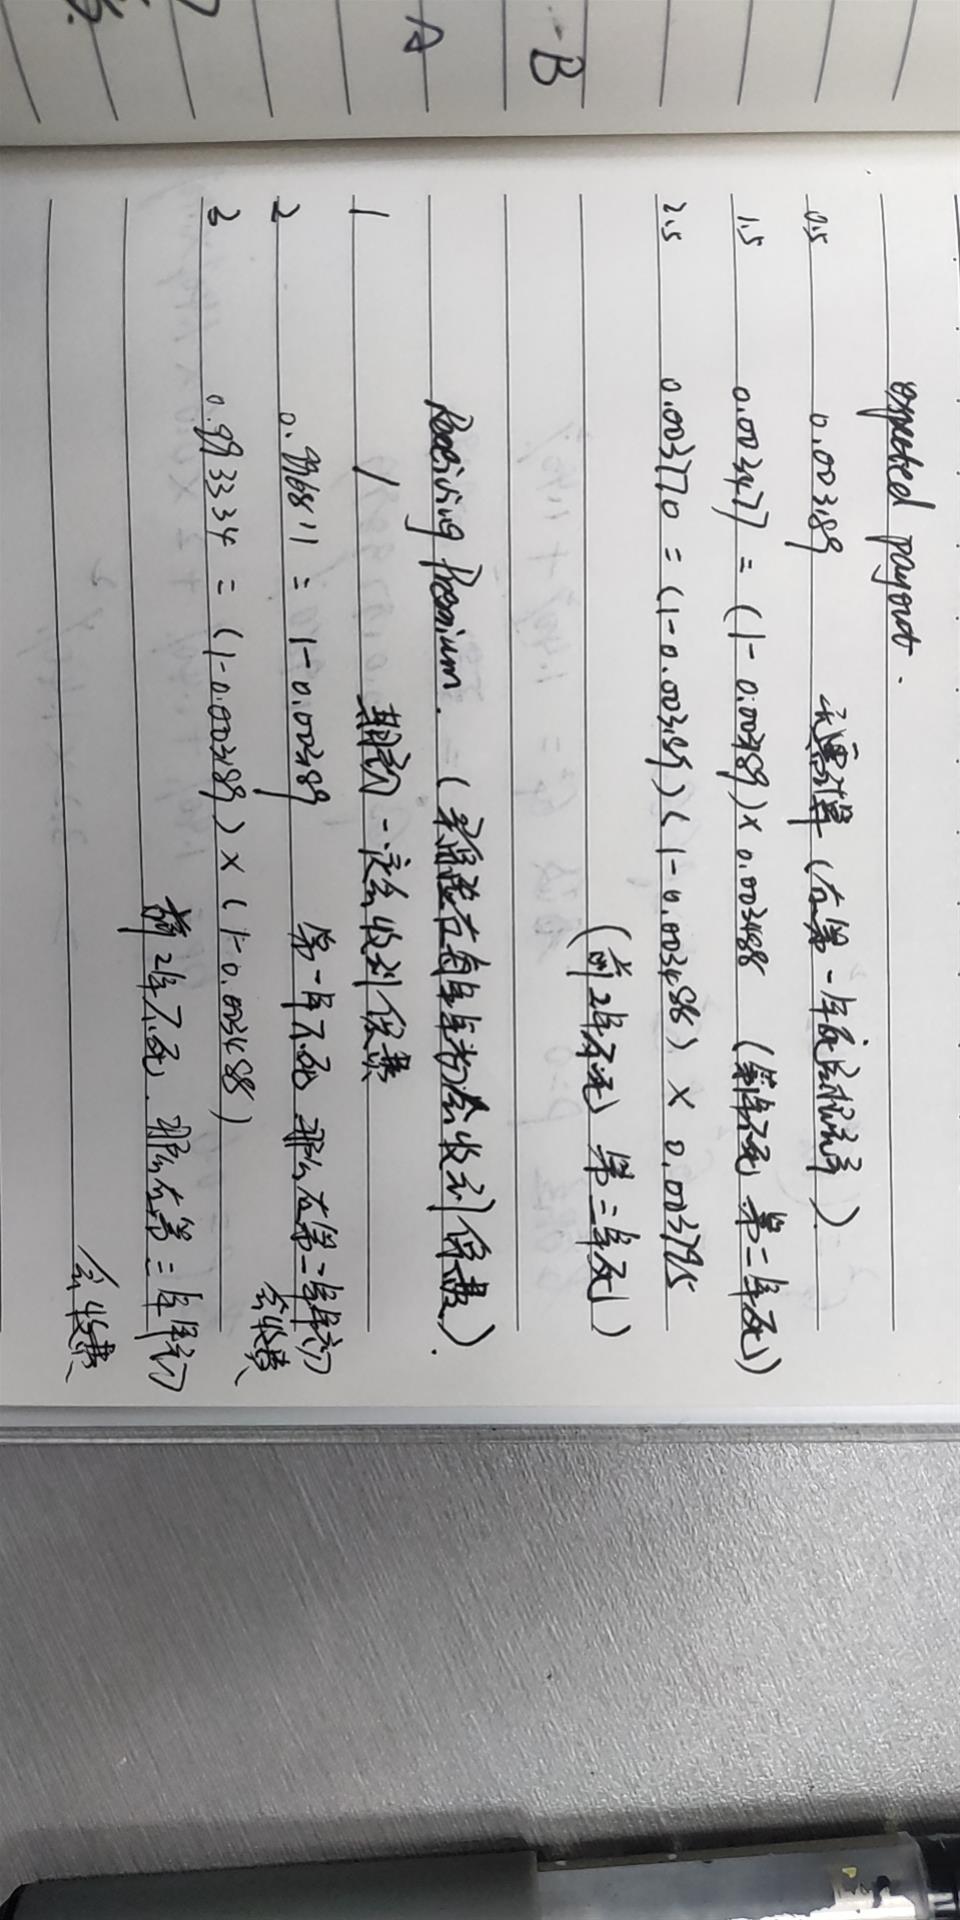 B
A
expected payout.
0.5 0.003189 不需计算（在第一年死亡的概率）
1.5 0.003477 = (1-0.003189)×0.003488 (第一年不死 第二年死)
2.5 0.003770 = (1-0.003189)(1-0.003488) × 0.003795
(前2年不死, 第三年死)
Receiving Premium. (如果活着在每年年初会收到保费).
1 1 期初一定会收到保费
2 0.996811 = 1-0.003189 第一年不死 那么在第二年年初
会收费
3 0.993334 = (1-0.003189) × (1-0.003488)
前2年不死, 那么在第三年年初
会收费